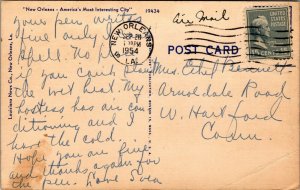 "New Orleans - America's Most Interesting City"
19434
Air Mail
your pen writes
fine only
spell. No
if you can't
the wet heat. My
hostess has air con
ditioning and I
have the cold.
Hope you are fine
and thanks again for
the pen. Love
Louisiana News Co., New Orleans, La.
NEW ORLEANS
SEP 28
PM
1954
LA.
POST CARD
Mrs. Ethel Bennett
Arnoldale Road
W. Hartford
Conn.